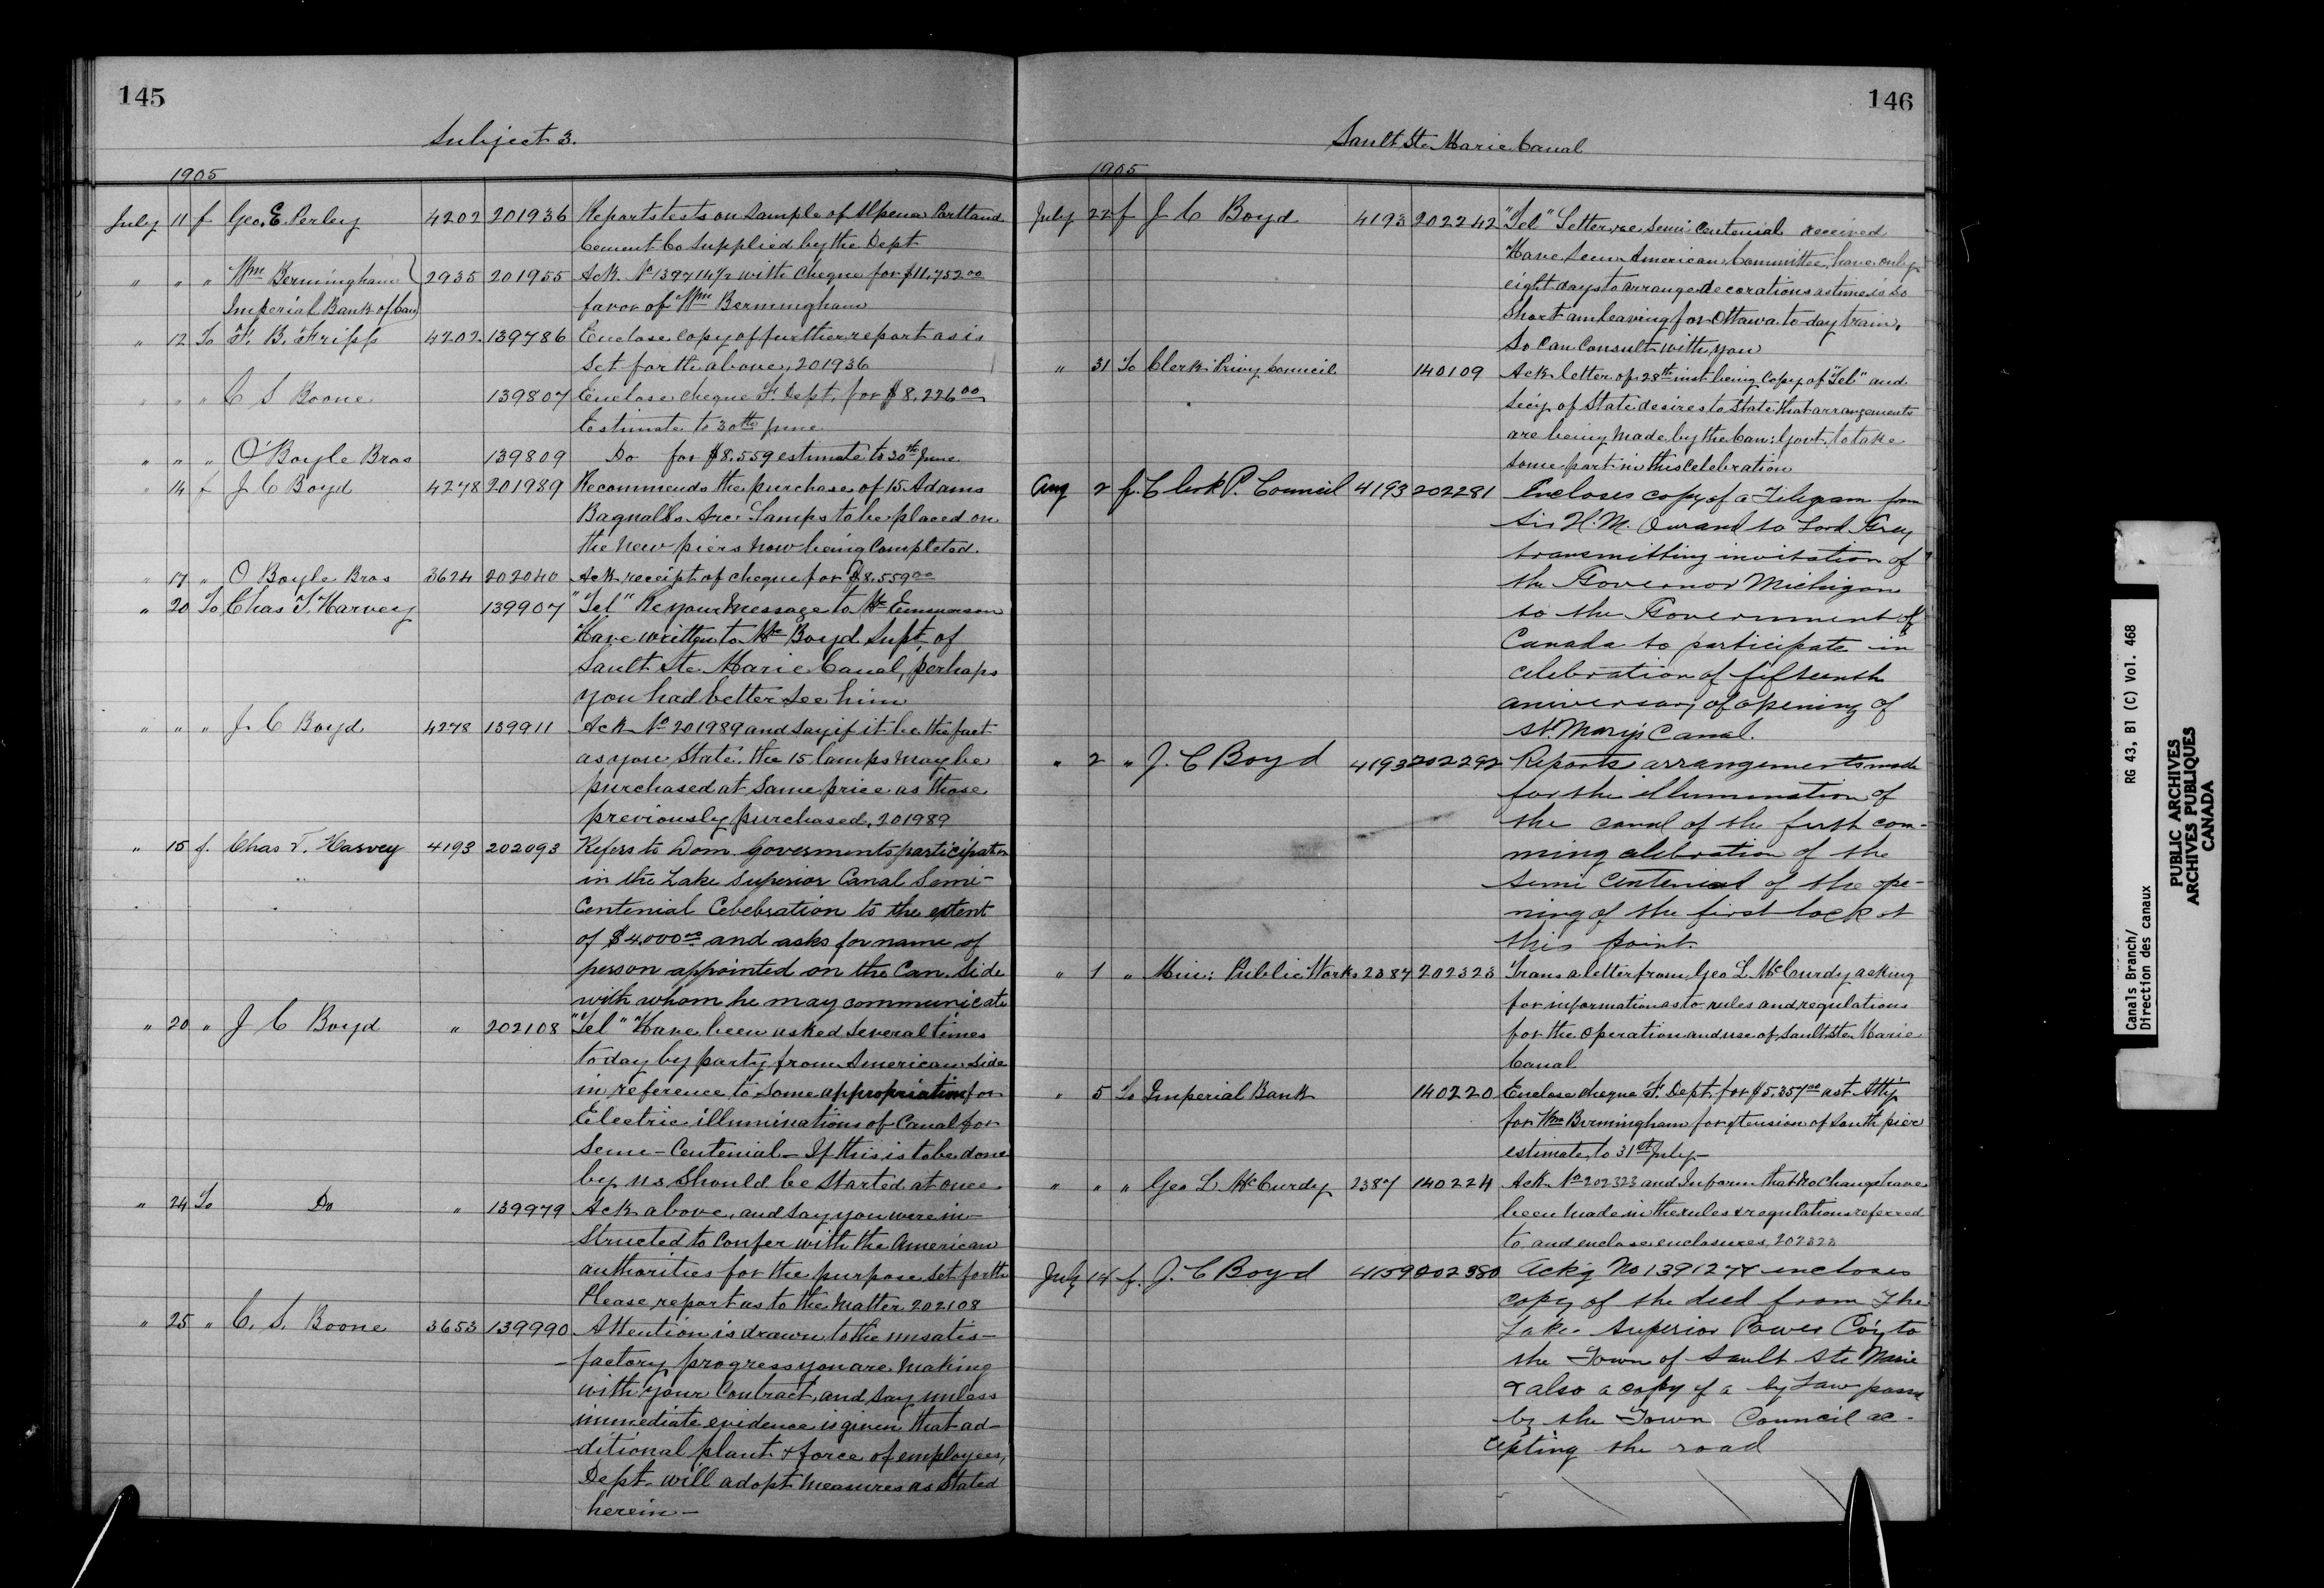 145
Subject 3.
1905
July 11 f Geo. E. Perley 4202 201936 Reports tests on Sample of Alpena Portland
Cement Co supplied by the Dept
" " " Wm Bermingham 2935 201955 Ack. No 139714½ with cheque for $11,752.00
Imperial Bank of Can favor of Wm Bermingham
" 12 To F. B. Fripp 4202 139786 Enclose copy of further report as is
Set forth above, 201936
" " " C S Boone 139807 Enclose cheque F. Dept. for $8,226.00
Estimate to 30th June
" " " O'Boyle Bros 139809 Do for $8.559 estimate to 30th June
" 14 f J C Boyd 4278 201989 Recommends the purchase of 15 Adams
Bagnalls Arc Lamps to be placed on
the new piers now being Completed.
" 17 " O Boyle Bros 3624 202040 Ack receipt of cheque for $8.559.00
" 20 To Chas T. Harvey 139907 "Tel" Re your Message to Mr Emmerson
Have written to Mr Boyd Supt, of
Sault Ste Marie Canal, perhaps
you had better See him
" " " J. C Boyd 4278 139911 Ack No 201989 and say if it be the fact
as you State, the 15 lamps may be
purchased at Same price as those
previously purchased, 201989
" 15 f. Chas T. Harvey 4193 202093 Refers to Dom. Goverments participation
in the Lake Superior Canal Semi-
Centenial Celebration to the extent
of $4.000.00 and asks for name of
person appointed on the Can. Side
with whom he may communicate
" 20 " J C Boyd " 202108 "Tel" Have been asked several times
today by party from American side
in reference to some appropriation for
Electric illuminations of Canal for
Semi-Centenial - If this is to be done
by us should be Started at once
" 24 To Do " 139979 Ack above, and say you were in-
structed to Confer with the American
authorities for the purpose set forth
Please report as to the Matter 202108
" 25 " C. S. Boone 3653 139990 Attention is drawn to the unsatis-
factory progress you are Making
with your Contract, and say unless
immediate evidence is given that ad-
-ditional plant & force of employees,
Dept. will adopt Measures as Stated
herein -
146
Sault Ste Marie Canal
1905
July 22 f J C Boyd 4193 202242 "Tel" Letter re Semi Centenial received
Have Seen American Committee, have only
eight days to arrange decorations as time is So
Short am leaving for Ottawa to-day train,
So Can Consult with you
" 31 To Clerk Privy Council 140109 Ack letter of 28th inst being Copy of "Tel" and
Sec'y of State desires to State that arrangements
are being made by the Can: Govt. to take
some part in this Celebration
Aug 2 f. Clerk P. Council 4193 202281 Encloses copy of a Telegram from
Sir H. M. Durand to Lord Grey
transmitting invitation of
the Governor Michigan
to the Government of
Canada to participate in
celebration of fifteenth
aniversary of opening of
St. Mary's Canal.
" 2 " J. C Boyd 4193 202292 Reports arrangements made
for the illumination of
the canal of the forth com-
ming celebration of the
semi Centenial of the ope-
ning of the first lock at
this point.
" 1 " Min: Public Works 2387 202323 Trans a letter from Geo L. McCurdy asking
for information as to rules and regulations
for the Operation and use of Sault Ste Marie
Canal
" 5 To Imperial Bank 140220 Enclose cheque F. Dept. for $5,357.00 as t Att'y
for Wm Birmingham for xtension of South pier
estimate to 31st July -
" " " Geo L. McCurdy 2387 140224 Ack No 202323 and Inform that No Change have
been made in the rules & regulations referred
to and enclose enclosures, 202323
July 14 f. J. C Boyd 4159 202380 Ack'g No 139127 & encloses
copy of the deed from The
Lake Superior Power Co'y to
the Town of Sault Ste Marie
& also a copy of a by Law passed
by the Town Council ac-
cepting the road
Canals Branch/ RG 43, B1 (C) Vol. 468
Direction des canaux
PUBLIC ARCHIVES
ARCHIVES PUBLIQUES
CANADA